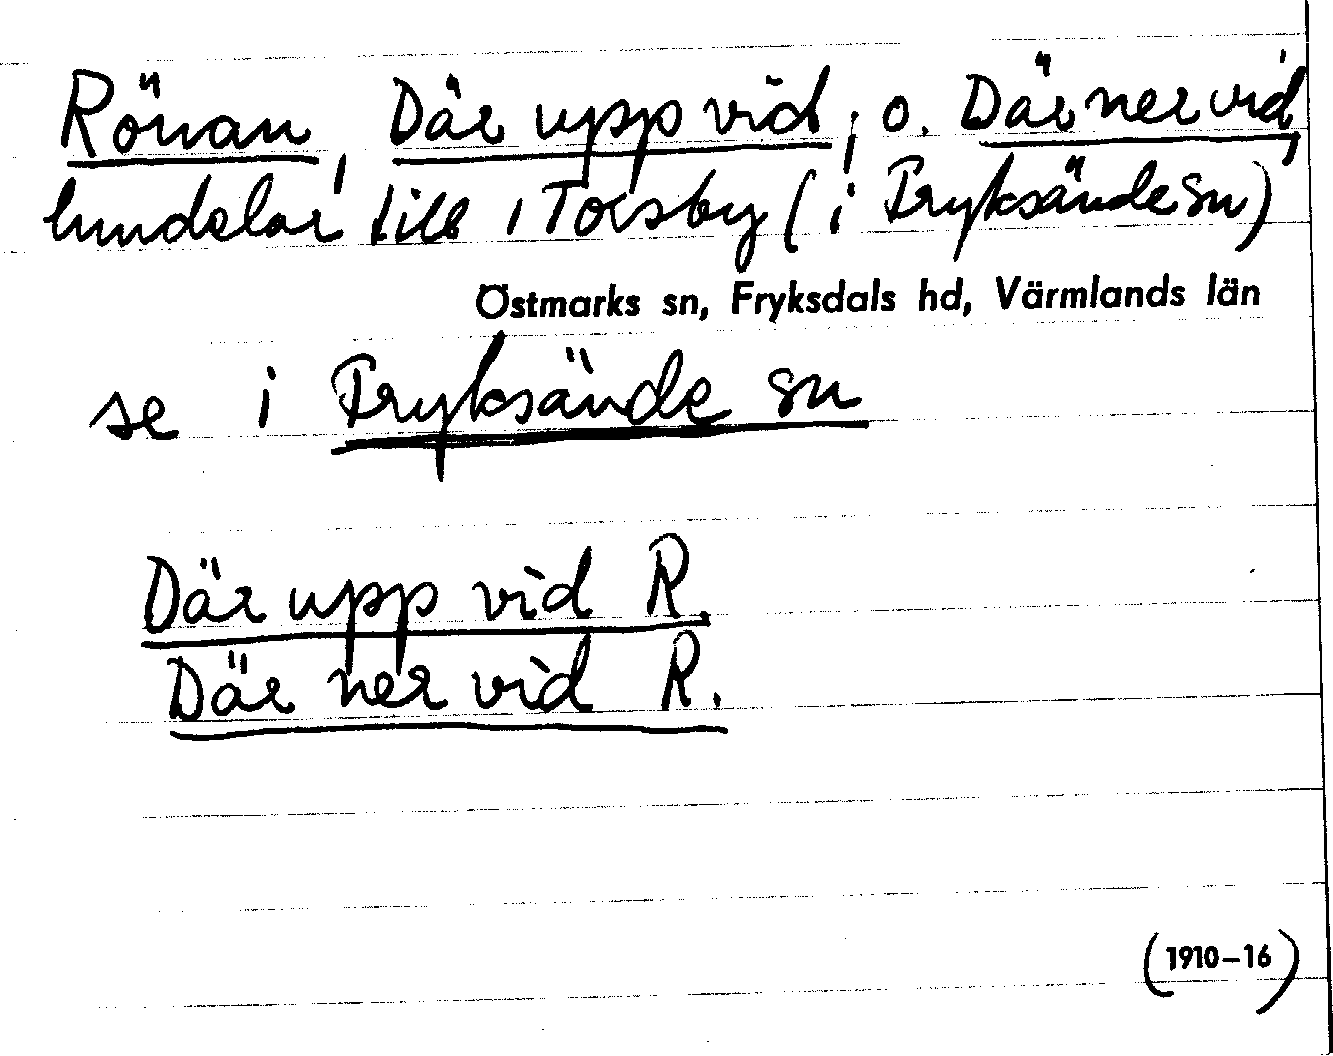 Rönan, Där upp vid, o. Där ner vid,
lundelar till 1 Torsby (i Fryksände sn)
Östmarks sn, Fryksdals hd, Värmlands län
se i Fryksände sn
Där upp vid R.
Där ner vid R.
(1910–16)